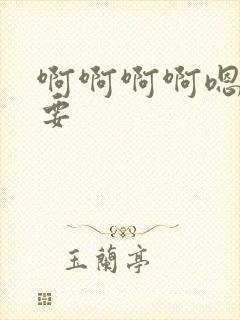 啊啊啊啊嗯
要
玉蘭亭